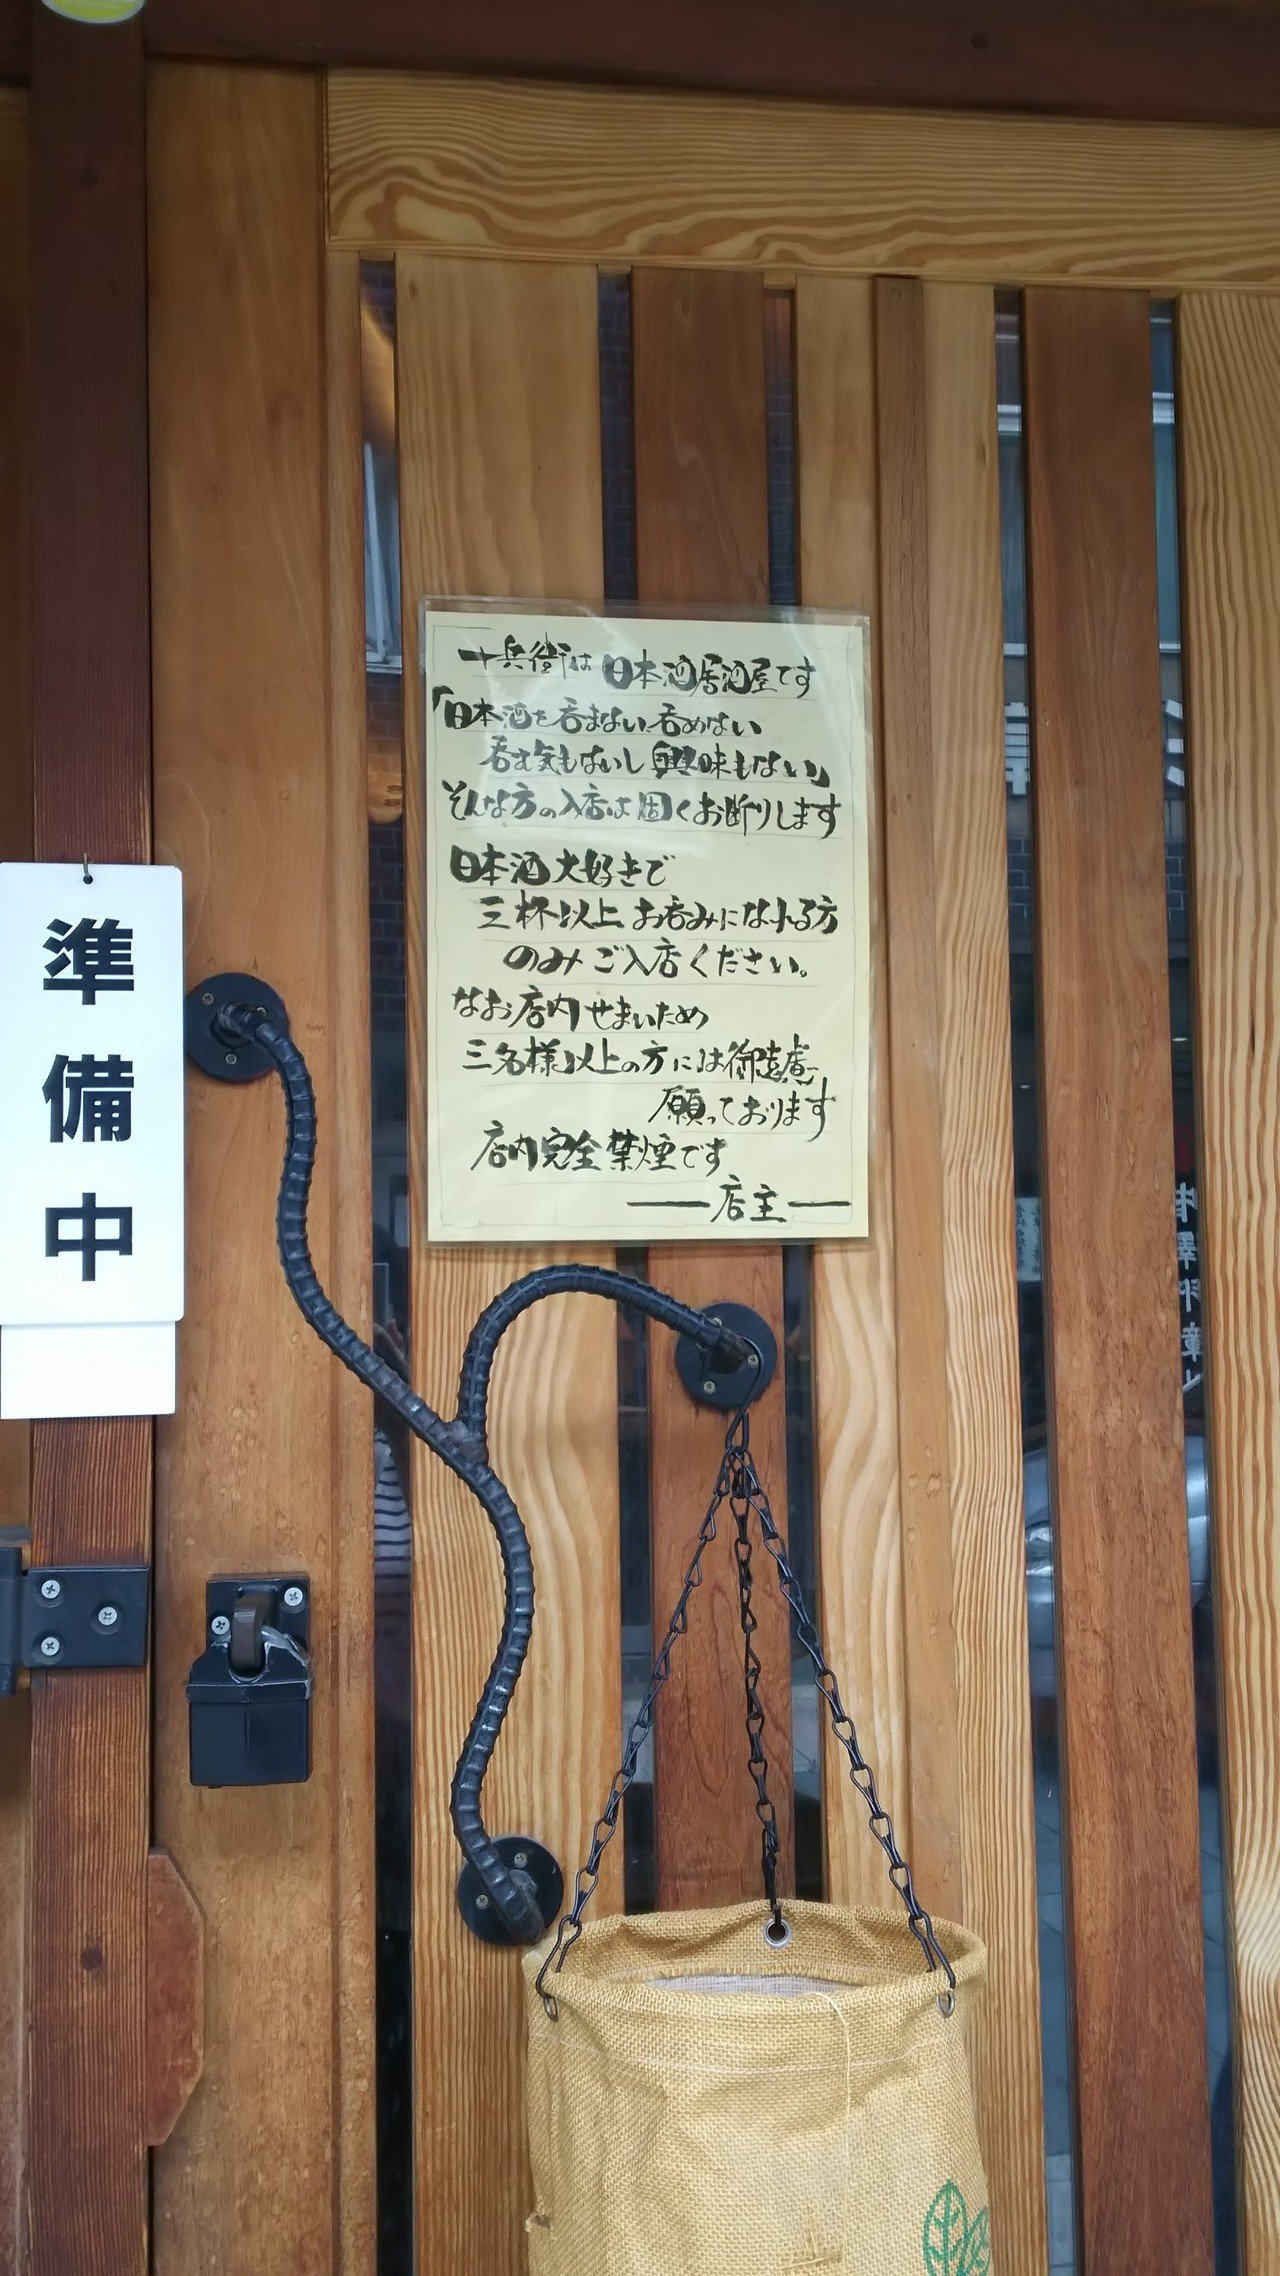 十兵衛は日本酒居酒屋です
「日本酒を呑まない、呑めない
呑む気もないし興味もない」
そんな方の入店は固くお断りします
日本酒大好きで
三杯以上お呑みになれる方
のみご入店ください。
なお店内せまいため
三名様以上の方には御遠慮
願っております
店内完全禁煙です
―店主―
準備中